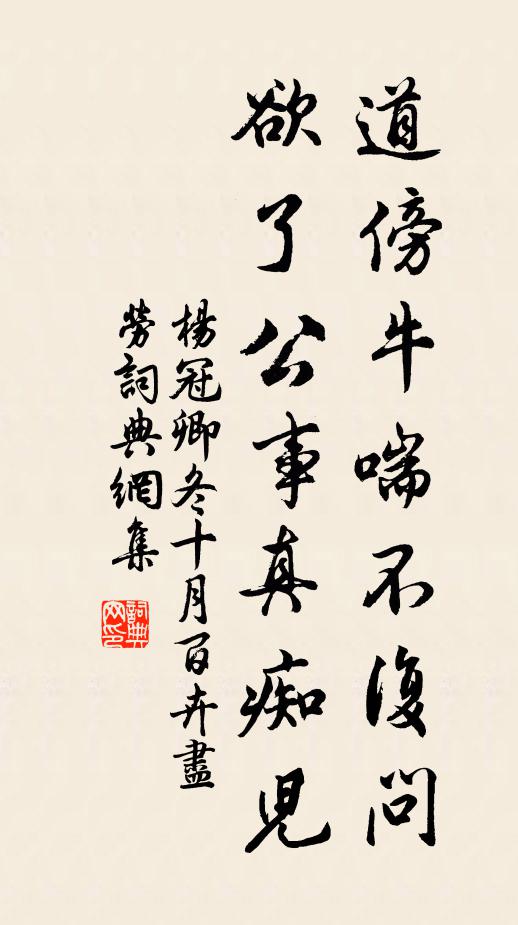 道傍牛喘不復問
欲了公事真痴児
楊冠卿冬十月百卉盡
勞詞典網集
詞典網印